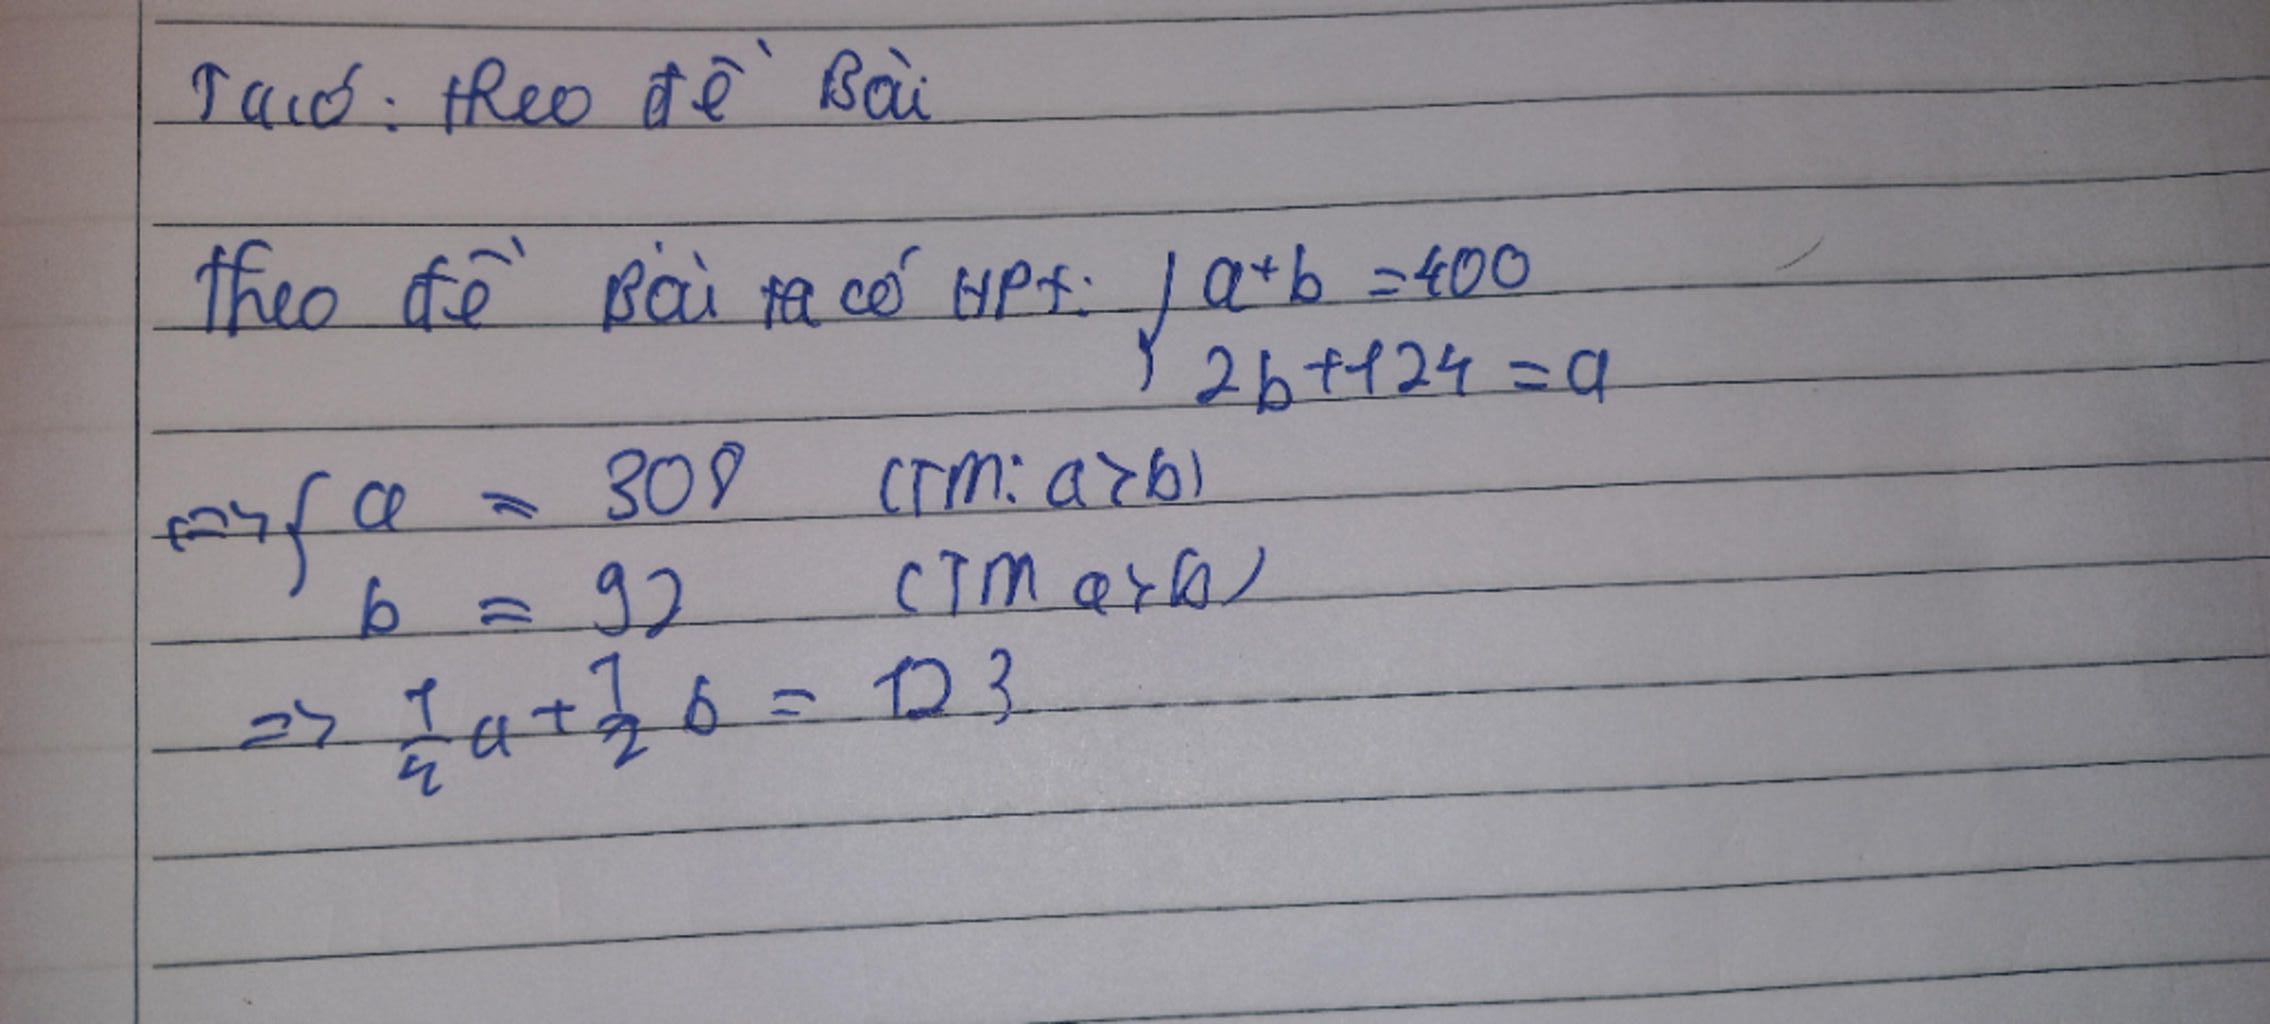 Ta có: theo đề Bài
theo đề Bài ta có HPt: { a+b = 400
2b+124 = a
<=> { a = 308 (TM: a>b)
b = 92 (TM a>b)
=> 1/4 a + 1/2 b = 123